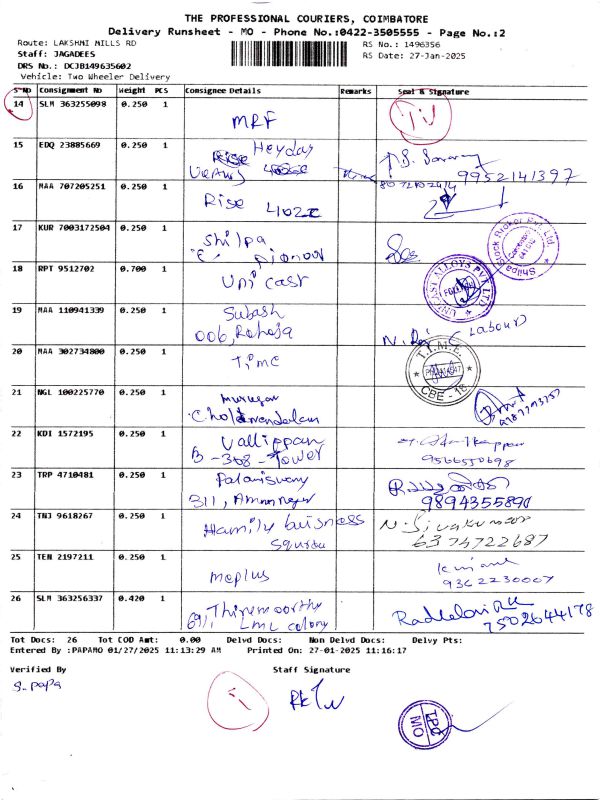 THE PROFESSIONAL COURIERS, COIMBATORE
Delivery Runsheet - MO - Phone No.:0422-3505555 - Page No.:2
Route: LAKSHMI MILLS RD
RS No.: 1496356
Staff: JAGADEES
RS Date: 27-Jan-2025
DRS No.: DCJB149635602
Vehicle: Two Wheeler Delivery
S*No Consignment No Weight PCS Consignee Details Remarks Seal & Signature
14 SLM 363255098 0.250 1 MRF
15 EDQ 23885669 0.250 1 Heyday
9952141397
16 MAA 707205251 0.250 1 Rise 402C
8072402414
17 KUR 7003172504 0.250 1 Shilpa
Shilpa Stock Broker Pvt. Ltd.
18 RPT 9512702 0.700 1 Uni cast
UNICAST ALLOYS PVT LTD
19 MAA 110941339 0.250 1 Subash
006, Raheja
Labour
20 MAA 302734800 0.250 1 Time
T.I.M.E.
CBE - 18
21 NGL 100225770 0.250 1 Murugan
22 KDI 1572195 0.250 1 Vallippan
B - 368 - Tower
9566550698
23 TRP 4710481 0.250 1 Palaniswamy
311, Amman Nagar
9894355890
24 TNJ 9618267 0.250 1 Hamily buisness
N. Sivakumar
6374722687
25 TEN 2197211 0.250 1 meplus
9362230007
26 SLM 363256337 0.420 1 Thirumoorthy
69/1, LML colony
7502644178
Tot Docs: 26 Tot COD Amt: 0.00 Delvd Docs: Non Delvd Docs: Delvy Pts:
Entered By :PAPAMO 01/27/2025 11:13:29 AM Printed On: 27-01-2025 11:16:17
Verified By Staff Signature
S. papa
TPC
MO